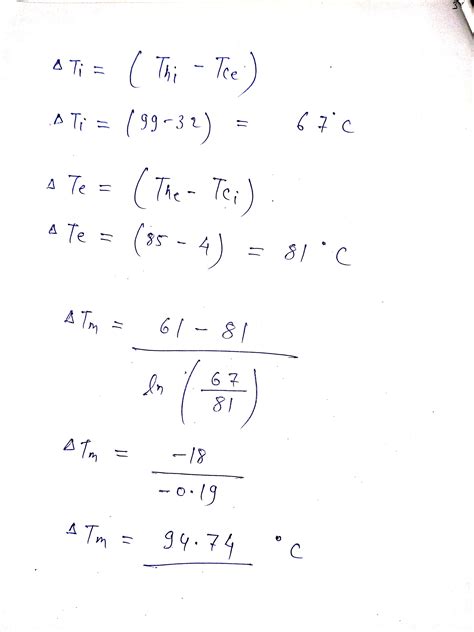 Δ Ti = (Thi - Tce)
Δ Ti = (99-32) = 67°C
Δ Te = (The - Tci)
Δ Te = (85 - 4) = 81°C
ΔTm = 61 - 81
ln (67/81)
ΔTm = -18
-0.19
ΔTm = 94.74 °C